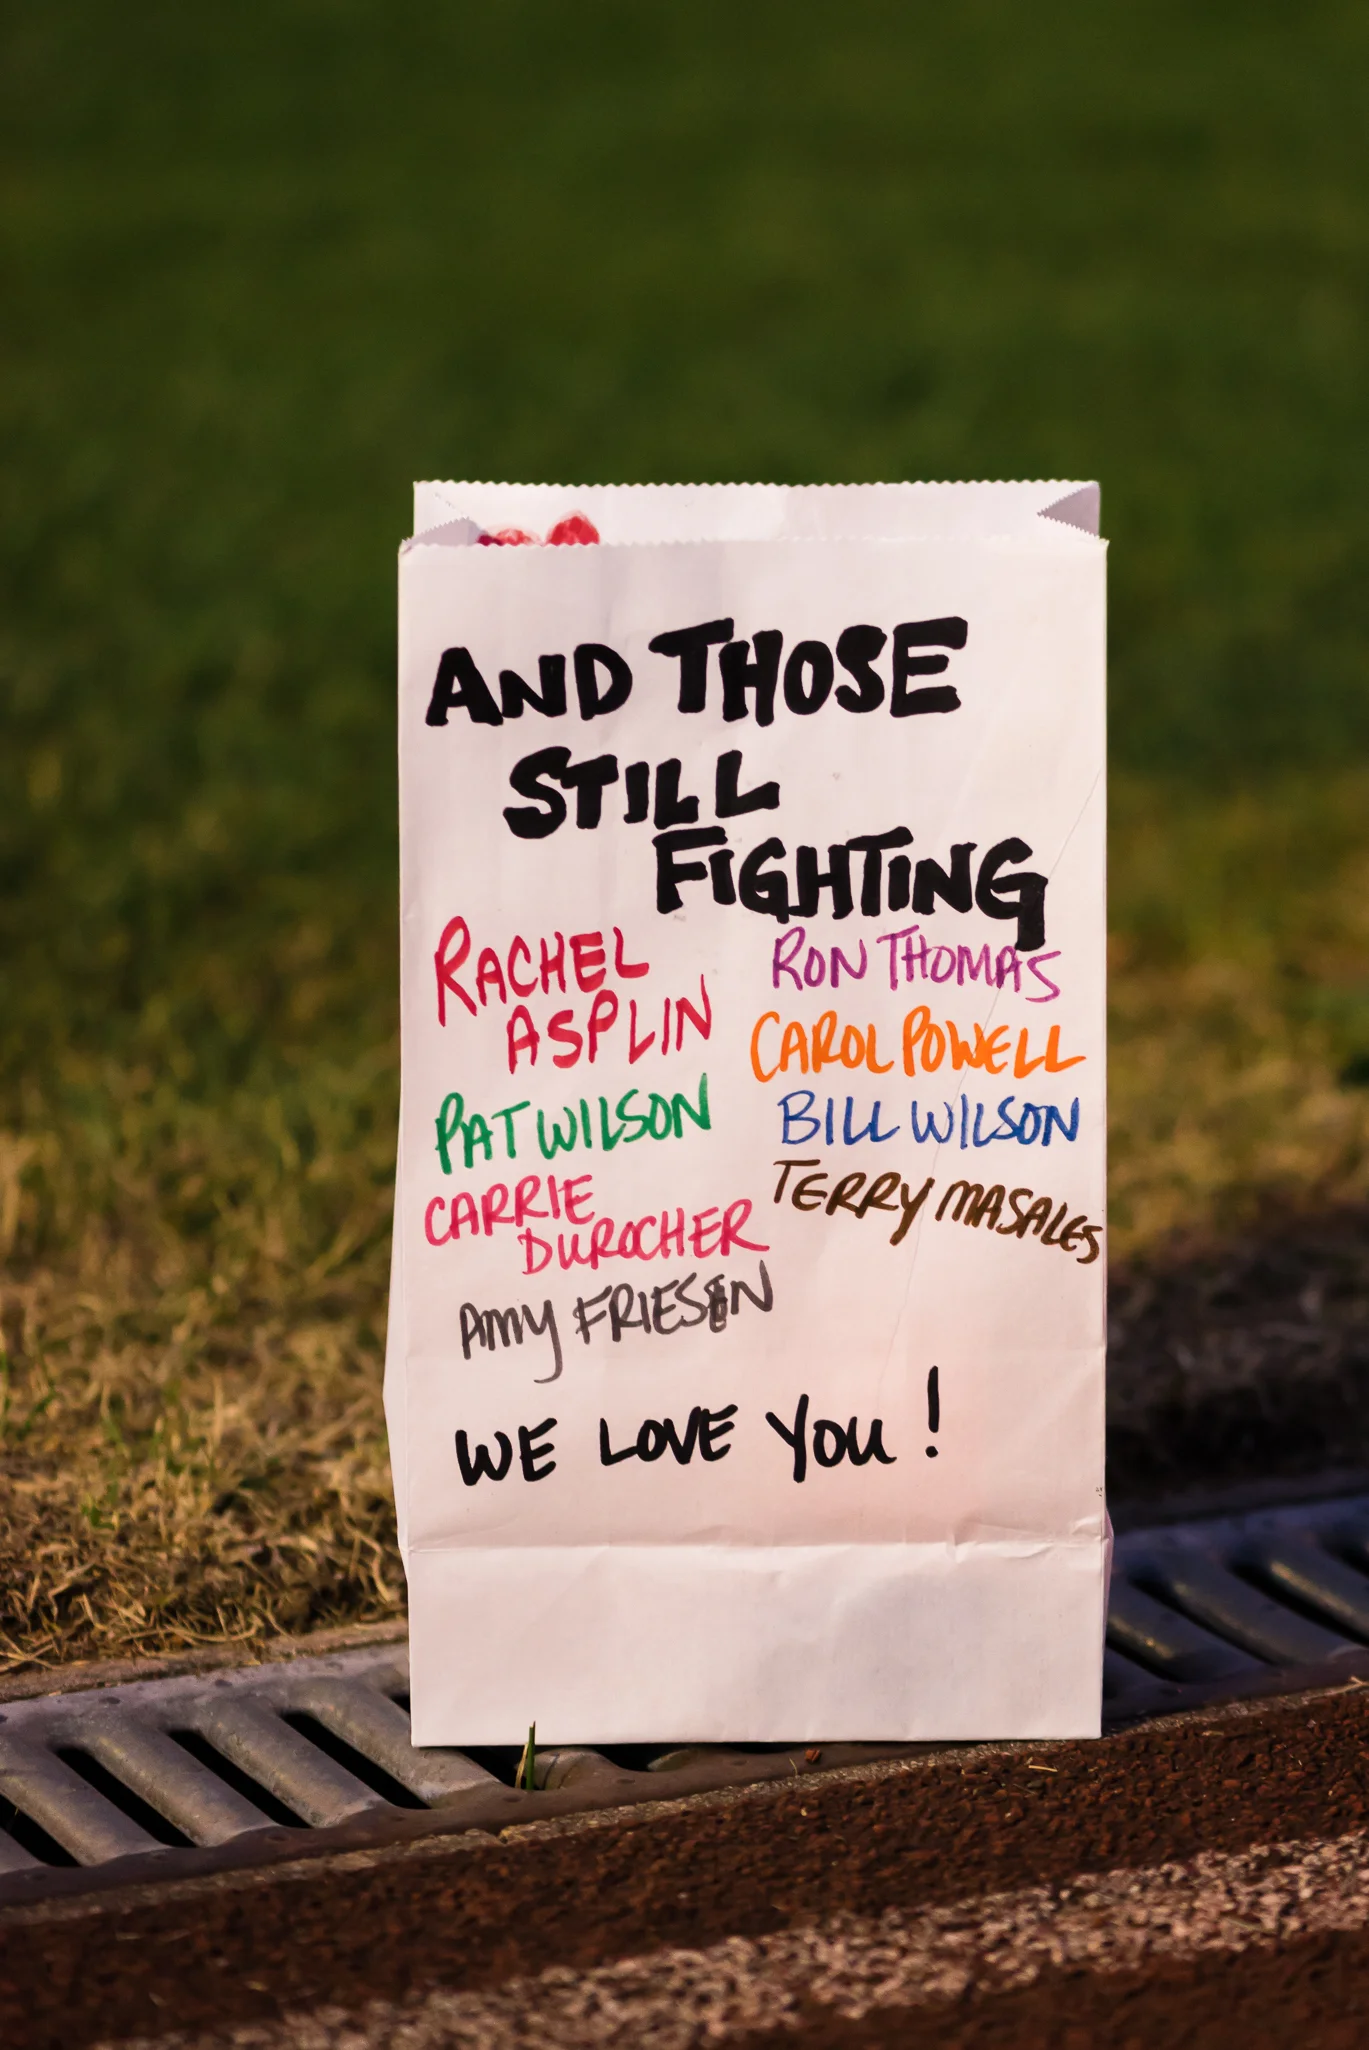 AND THOSE
STILL
FIGHTING
RACHEL
ASPLIN
PAT WILSON
CARRIE
DUROCHER
AMY FRIESEN
RON THOMAS
CAROL POWELL
BILL WILSON
TERRY MASALES
WE LOVE YOU!